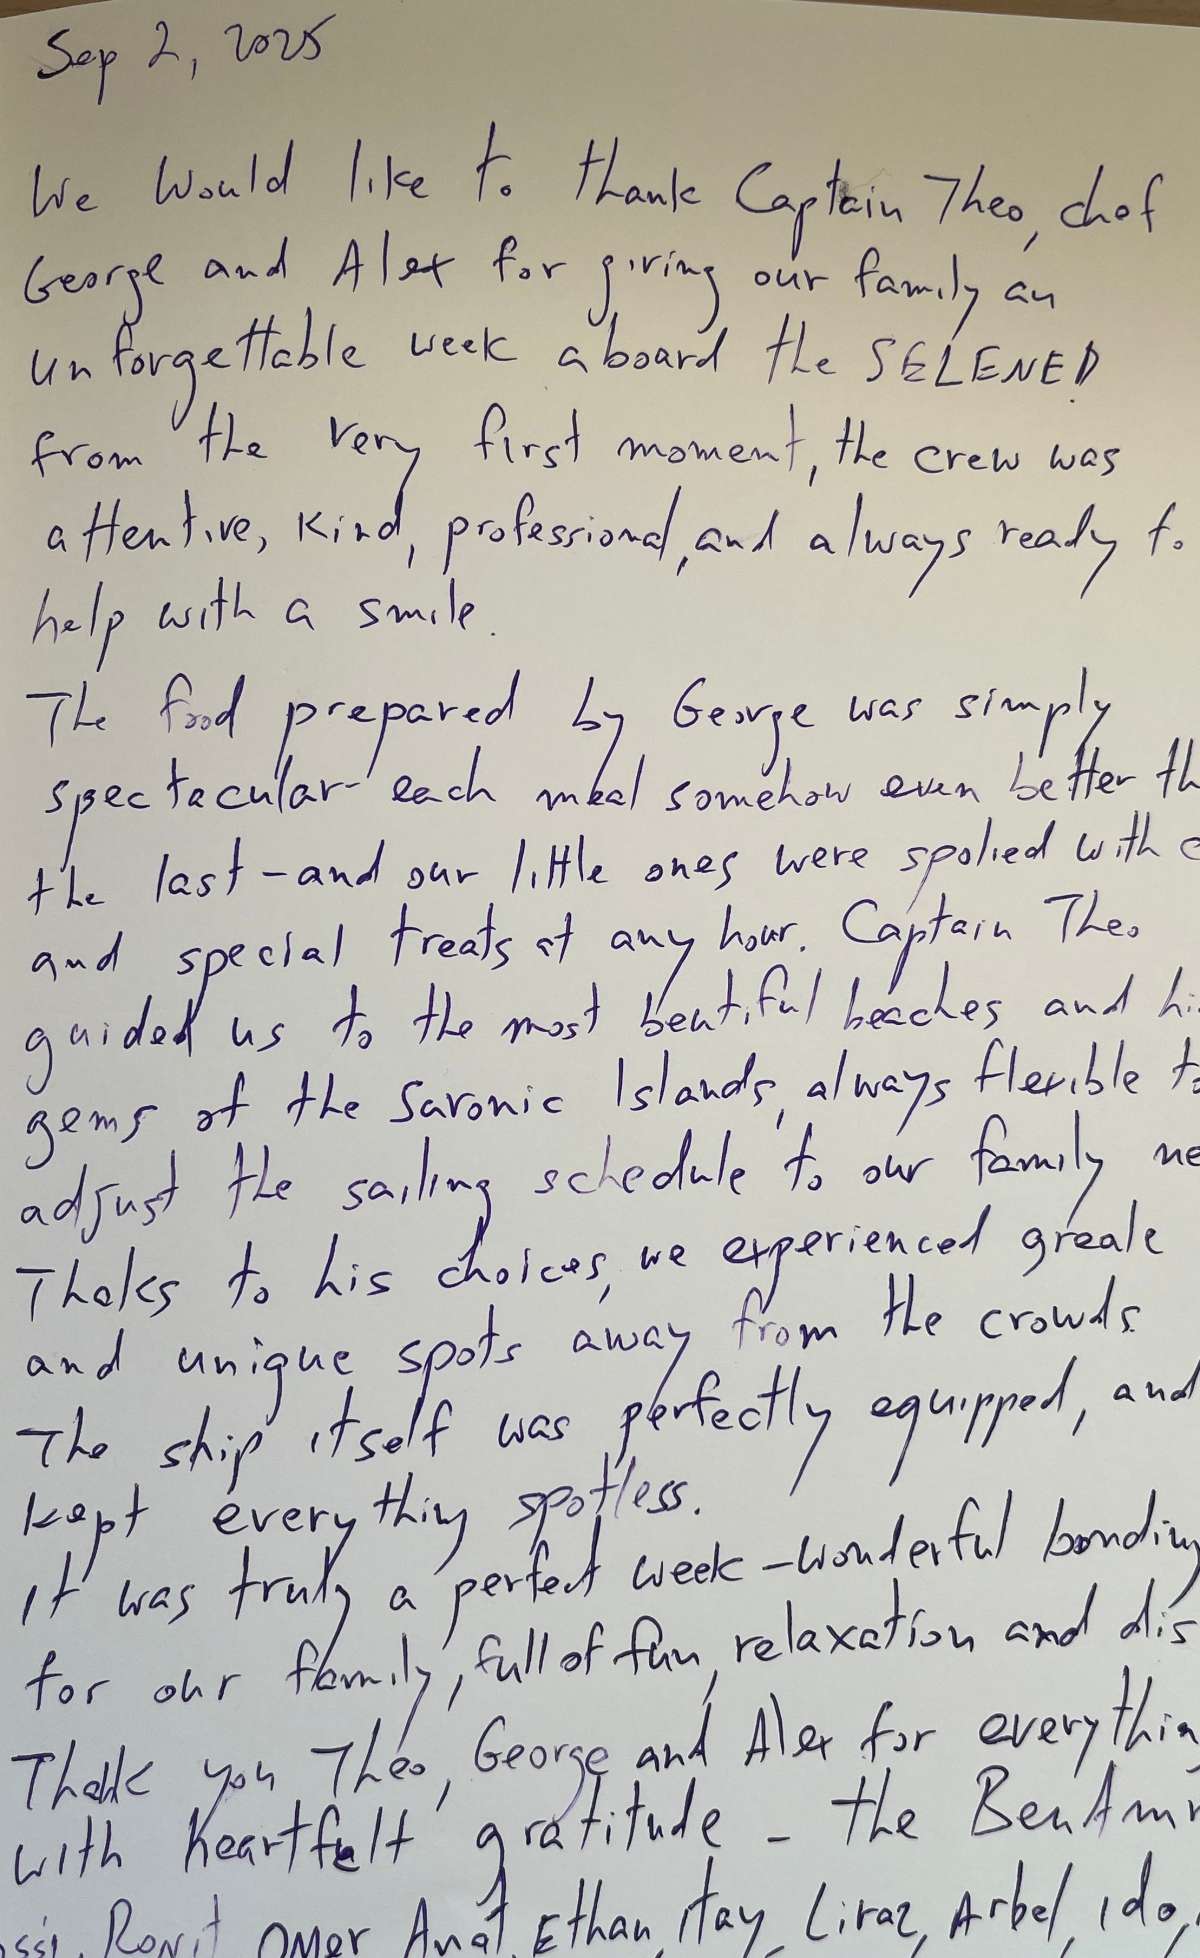 Sep 2, 2025
We Would like to thank Captain Theo, chef
George and Alex for giving our family an
unforgettable week aboard the
from the very first moment, the crew was
attentive, kind, professional, and always ready to
help with a smile.
The food prepared by George was simply
spectacular - each meal somehow even better th
the last - and our little ones were spolied with c
and special treats at any hour. Captain Theo
guided us to the most beutiful beaches and hi
gems of the Saronic Islands, always flexible to
adjust the sailing schedule to our family ne
Thaks to his choices, we experienced
and unique spots away from the crowds.
The ship itself was perfectly equipped, and
kept everything spotless.
It was truly a perfect week - wonderful bonding
for our family, full of fun, relaxation and dis
Thank you Theo, George and Alex for everything
with heartfelt gratitude - the BenAm
ssi, Ronit, Omer Anat, Ethan, Itay, Liraz, Arbel, Ido,